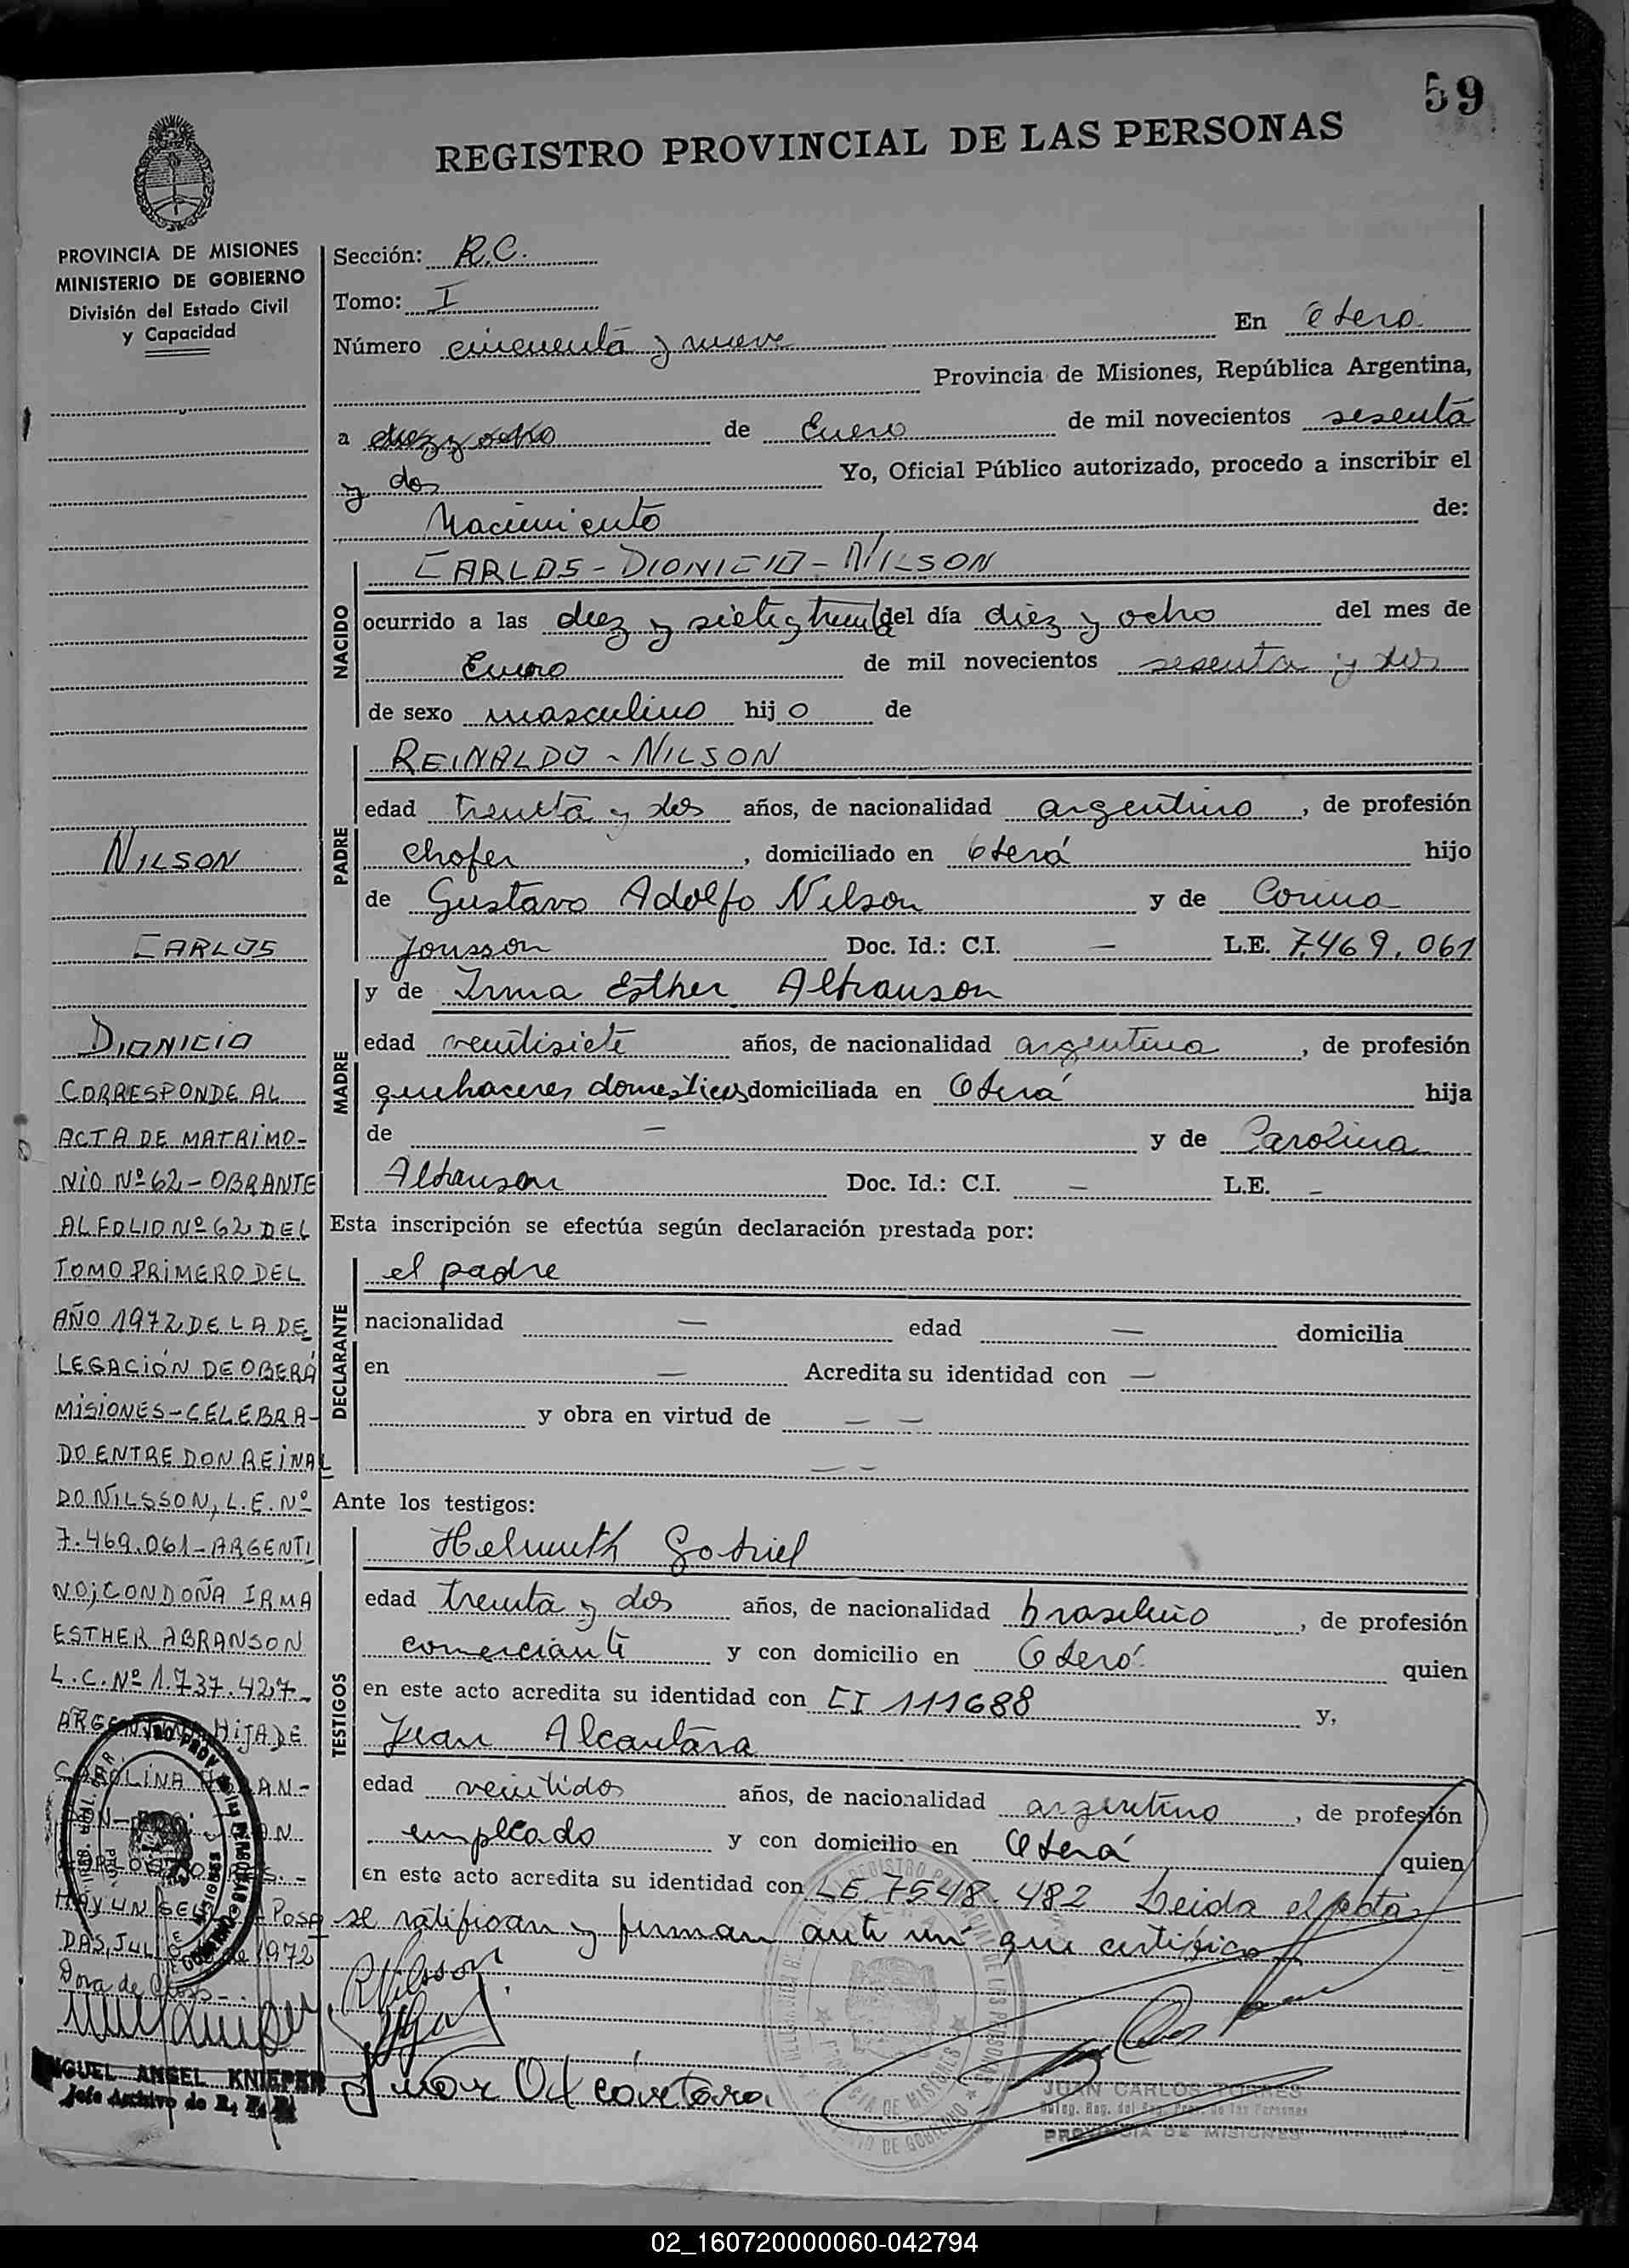 59
REGISTRO PROVINCIAL DE LAS PERSONAS
PROVINCIA DE MISIONES
MINISTERIO DE GOBIERNO
División del Estado Civil
y Capacidad
Sección: R.C.
Tomo: I
Número cincuenta y nueve En Oberá
Provincia de Misiones, República Argentina,
a diez y ocho de Enero de mil novecientos sesenta
y dos Yo, Oficial Público autorizado, procedo a inscribir el
Nacimiento de:
NACIDO
CARLOS-DIONICIO-NILSON
ocurrido a las diez y siete y treinta del día diez y ocho del mes de
Enero de mil novecientos sesenta y dos
de sexo masculino hijo de
PADRE
REINALDO-NILSON
edad treinta y dos años, de nacionalidad argentino, de profesión
chofer, domiciliado en Oberá hijo
de Gustavo Adolfo Nilson y de Corina
Jonsson Doc. Id.: C.I. — L.E. 7.469.061
MADRE
y de Irma Esther Abranson
edad veintisiete años, de nacionalidad argentina, de profesión
quehaceres domesticos domiciliada en Oberá hija
de — y de Carolina
Abranson Doc. Id.: C.I. — L.E. —
Esta inscripción se efectúa según declaración prestada por:
DECLARANTE
el padre
nacionalidad — edad — domicilia
en — Acredita su identidad con —
y obra en virtud de — —
— —
Ante los testigos:
TESTIGOS
Helmuth
edad treinta y dos años, de nacionalidad brasileño, de profesión
comerciante y con domicilio en Oberá quien
en este acto acredita su identidad con CI 111688 y,
Juan Alcantara
edad veintidos años, de nacionalidad argentino, de profesión
empleado y con domicilio en Oberá quien
en este acto acredita su identidad con LE 7548.482 Leida el acta
se ratifican y firman ante mi que certifico
RNilsson
Juan Alcantara
JUAN CARLOS TORRES
PROVINCIA DE MISIONES
NILSON
CARLOS
DIONICIO
CORRESPONDE AL
ACTA DE MATRIMO-
NIO Nº 62-OBRANTE
AL FOLIO Nº 62 DEL
TOMO PRIMERO DEL
AÑO 1972 DE LA DE
LEGACIÓN DE OBERÁ
MISIONES-CELEBRA-
DO ENTRE DON REINAL
DO NILSSON, L.E. Nº
7.469.061-ARGENTI
NO; CON DOÑA IRMA
ESTHER ABRANSON
L.C. Nº 1.737.427-
ARGENTINA HIJA DE
CAROLINA ABRAN-
HAY UN SELLO POSA
DAS, JULIO de 1972
MIGUEL ANGEL KNIEPER
Jefe Archivo de R. P. P.
02_160720000060-042794